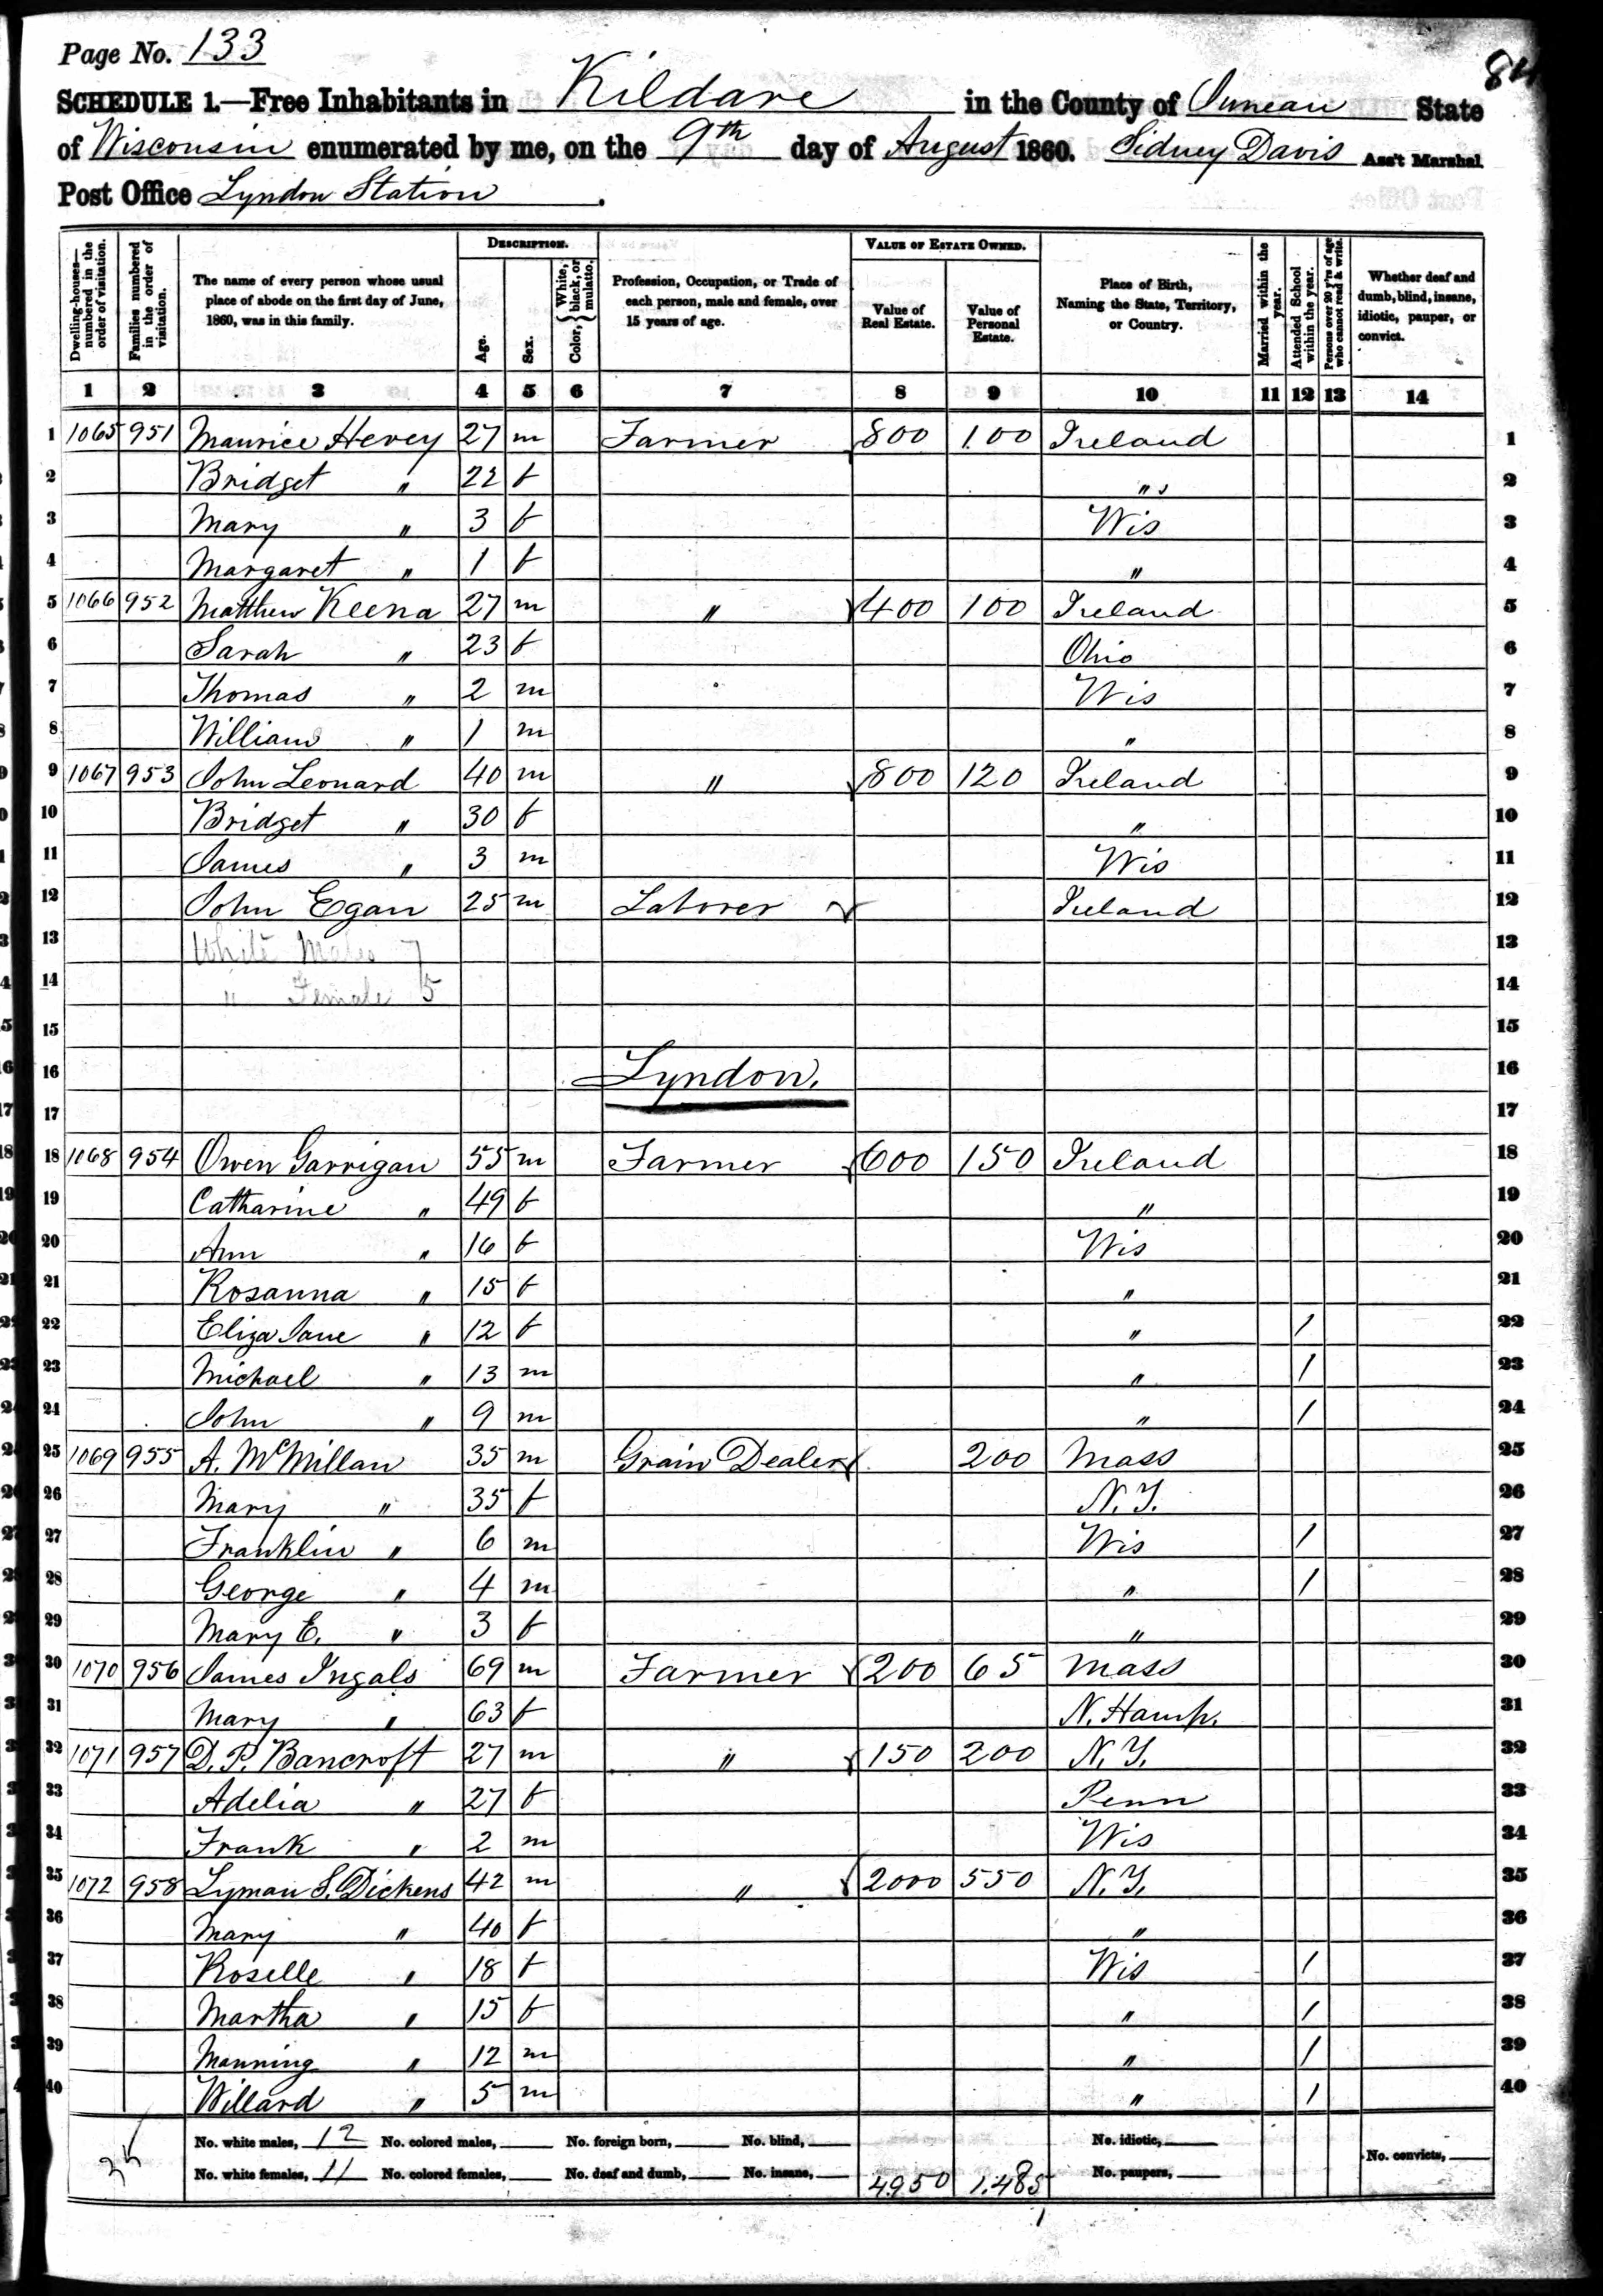 Page No. 133
84
SCHEDULE 1.—Free Inhabitants in Kildare in the County of Juneau State
of Wisconsin enumerated by me, on the 9th day of August 1860. Sidney Davis Ass't Marshal.
Post Office Lyndon Station.
Dwelling-houses—numbered in the order of visitation.
Families numbered in the order of visitation.
The name of every person whose usual place of abode on the first day of June, 1860, was in this family.
DESCRIPTION.
Age.
Sex.
Color, {White, black, or mulatto.
Profession, Occupation, or Trade of each person, male and female, over 15 years of age.
VALUE OF ESTATE OWNED.
Value of Real Estate.
Value of Personal Estate.
Place of Birth, Naming the State, Territory, or Country.
Married within the year.
Attended School within the year.
Persons over 20 y'rs of age who cannot read & write.
Whether deaf and dumb, blind, insane, idiotic, pauper, or convict.
1 2 3 4 5 6 7 8 9 10 11 12 13 14
1 1065 951 Maurice Hevey 27 m Farmer 800 100 Ireland 1
2 Bridget " 22 f " 2
3 Mary " 3 f Wis 3
4 Margaret " 1 f " 4
5 1066 952 Matthew Keena 27 m " 400 100 Ireland 5
6 Sarah " 23 f Ohio 6
7 Thomas " 2 m Wis 7
8 William " 1 m " 8
9 1067 953 John Leonard 40 m " 800 120 Ireland 9
10 Bridget " 30 f " 10
11 James " 3 m Wis 11
12 John Egan 25 m Laborer Ireland 12
13 White Males 7 13
14 " Female 5 14
15 15
16 Lyndon. 16
17 17
18 1068 954 Owen Garrigan 55 m Farmer 600 150 Ireland 18
19 Catharine " 49 f " 19
20 Ann " 16 f Wis 20
21 Rosanna " 15 f " 21
22 Eliza Jane " 12 f " 1 22
23 Michael " 13 m " 1 23
24 John " 9 m " 1 24
25 1069 955 A. McMillan 35 m Grain Dealer 200 Mass 25
26 Mary " 35 f N.Y. 26
27 Franklin " 6 m Wis 1 27
28 George " 4 m " 1 28
29 Mary E. " 3 f " 29
30 1070 956 James Ingals 69 m Farmer 200 65 Mass 30
31 Mary " 63 f N. Hamp. 31
32 1071 957 D. P. Bancroft 27 m " 150 200 N.Y. 32
33 Adelia " 27 f Penn 33
34 Frank " 2 m Wis 34
35 1072 958 Lyman S. Dickens 42 m " 2000 550 N.Y. 35
36 Mary " 40 f " 36
37 Roselle " 18 f Wis 1 37
38 Martha " 15 f " 1 38
39 Manning " 12 m " 1 39
40 Willard " 5 m " 1 40
No. white males, 12 No. colored males, No. foreign born, No. blind, No. idiotic,
No. white females, 11 No. colored females, No. deaf and dumb, No. insane, 4950 1.485 No. paupers, No. convicts,